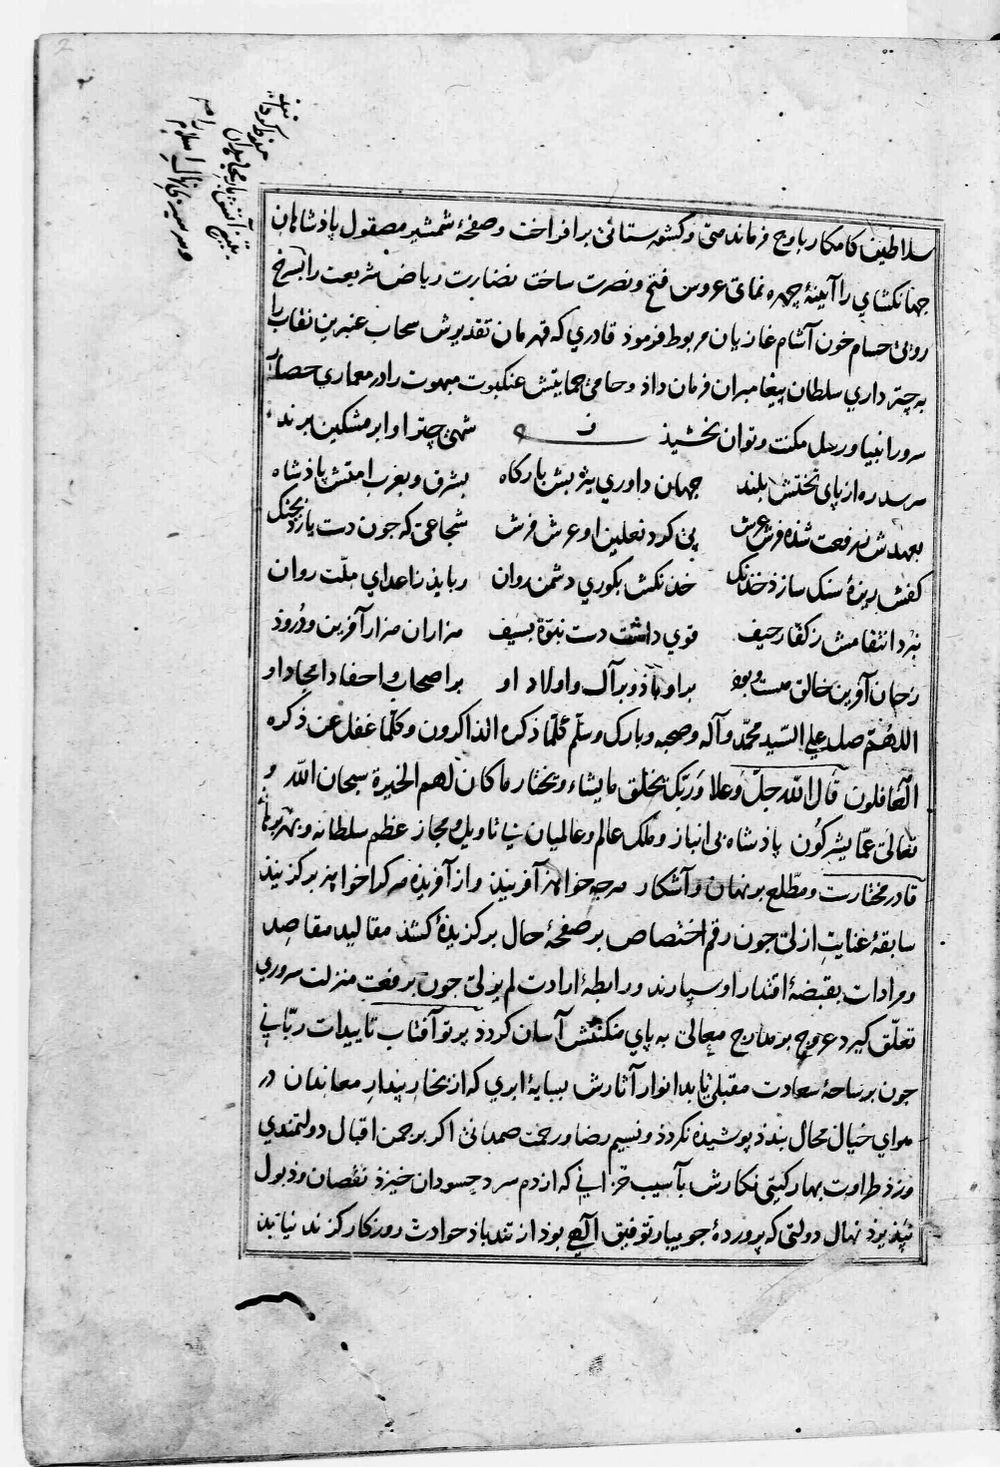 سلاطین کامکار باوج فرماندهی و کشورستانی برافراخت و صفحهٔ شمشیر مصقول پاذشاهان
جهانکشای را آیینهٔ چهره نمای عروس فتح و نصرت ساخت نضارت ریاض شریعت را بسرخ
رویی حسام خون آشام غازیان مربوط فرموذ قادری که قهرمان تقدیرش سحاب عنبرین نقاب را
به چتر داری سلطان پیغامبران فرمان داذ و حامی حمایتش عنکبوت مبهوت را در معماری حصار
سرور انبیا و رسل مکنت و توان بخشیذ شهی چتر او ابر مشکین پرند
سر سدره از پای تختش بلند جهان داوری یثربش بارکاه بشرق و بغرب امتش پاذشاه
بعهدش رفعت شذه فرش عرش پی کرد نعلین او عرش فرش شجاعی که جون دست یازذ بجنک
کفش ریزهٔ سنک سازذ خدنک خدنکش بکوری دشمن روان ربایذ ز اعدای ملّت روان
نبرد انتقامش ز کفار حیف قوی داشت دست نبوّة بسیف هزاران هزار آفرین و دُروذ
ز جان آفرین خالق هست و بوذ برو باذ و بر آل و اولاد او بر اصحاب و احفاد امجاد او
اللهُمّ صل علی السّید محمّد وآله وصحبه وبارک وسلّم کُلّما ذکره الذاکرون وکلّما غفل عن ذکره
الغافلون قال اللّه جلّ وعلا وَرَبّک یخلق ما یشاء ویختار ما کان لهم الخیرة سبحان اللّه و
تعالی عمّا یشرکون پاذشاه بی انباز و ملک عالم و عالمیان بی تاویل و مجاز عظم سلطانه و بهر برهانه
قادر مختارست و مطّلع بر نهان و آشکار هرجه خواهذ آفرینذ و از آفریذه هرکرا خواهذ برکزینذ
سابقهٔ عنایت ازلی جون رقم اختصاص بر صفحهٔ حال برکزیذهٔ کشذ مقالید مقاصِد
و مرادات بقبضهٔ اقتدار او سپارند و رابطهٔ ارادت لم یزلی جون برفعت منزلت سروری
تعلّق کیرد عروج بر مدارج معالی به پای مکنتش آسان کردذ پرتو آفتاب تاییدات ربّانی
جون بر ساحهٔ سعادت مقبلی تابد انوار آثارش بسایهٔ ابری که از بخار پندار معاندان در
هوای خیال محال بندذ پوشیذه نکردذ و نسیم رضا و رحمت صمدانی اکر بر جمن اقبال دولتمندی
وزذ طراوت بهار کیتی نکارش بآسیب خزانی که از دم سرد حسودان خیزذ نقصان و ذبول
نپذیرذ نهال دولتی که پروردهٔ جویبار توفیق الهی بوذ از تندباذ حوادث روزکار کزند نیابذ